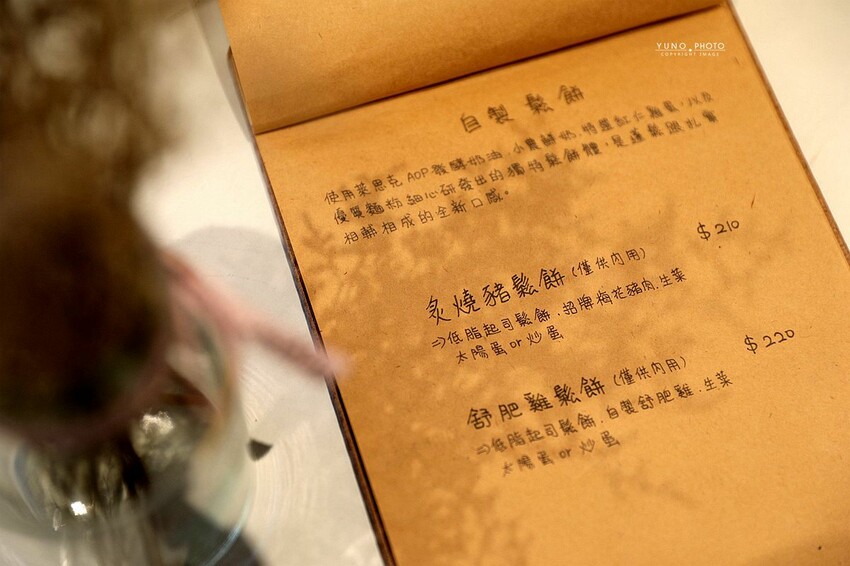 YUNO PHOTO
COPYRIGHT IMAGE
自製鬆餅
使用萊思克AOP發酵奶油、小農鮮奶、特選紅仁雞蛋、以及
優質麵粉細心研發出的獨特鬆餅體,是蓬鬆跟扎實
相輔相成的全新口感。
$210
炙燒豬鬆餅(僅供內用)
⇒低脂起司鬆餅、招牌梅花豬肉、生菜
太陽蛋 or 炒蛋
$220
舒肥雞鬆餅(僅供內用)
⇒低脂起司鬆餅、自製舒肥雞、生菜
太陽蛋 or 炒蛋